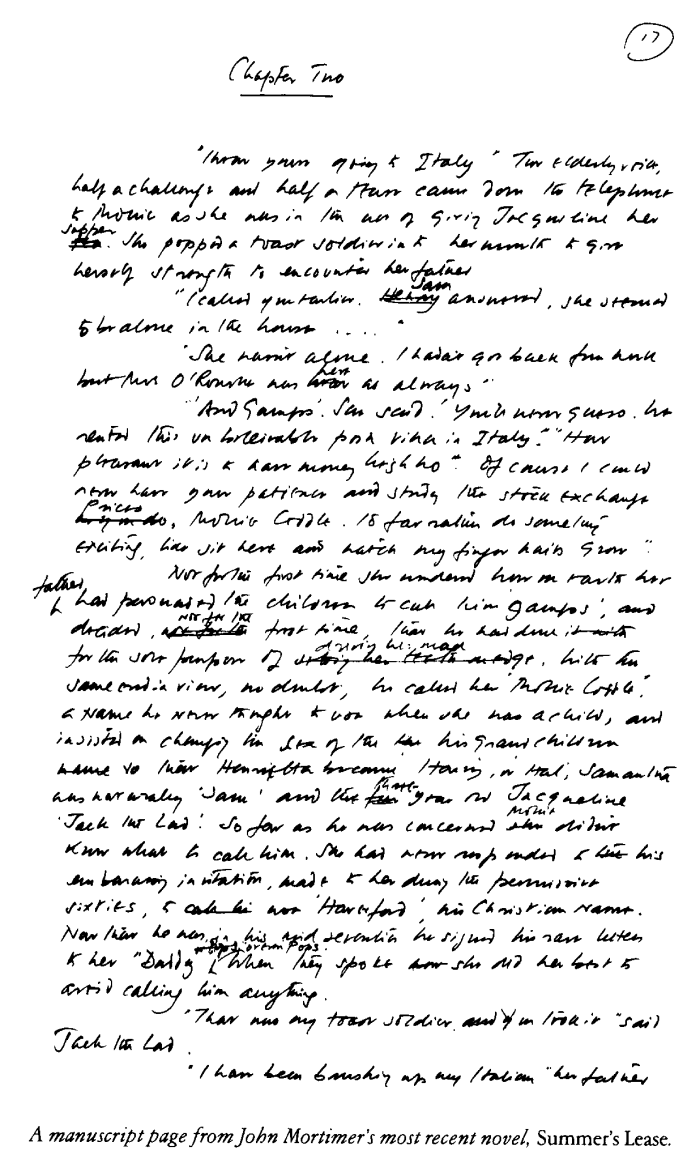 17
Chapter Two
"I hear you're going to Italy" The elderly voice,
half a challenge and half a came down the telephone
to Molly as she was in the of giving Jacqueline her
supper
tea. She popped a toast soldier into her mouth to give
herself strength to encounter her father
Sam
"I called you earlier. Henry answered, she seemed
to be alone in the house .... "
"She wasn't alone. I hadn't got back from work
here
but Mrs O'Rourke was as always"
"And Gamps'. She said. 'You'll never guess. he
rented this unbelievable posh villa in Italy'." "How
pleasant it is to have money heigh ho". Of course I could
never have your patience and study the stock exchange
Prices
, Mollie Coddle. I'd far rather do something
exciting, like sit here and watch my finger nails grow".
Not for the first time she wondered how on earth her
father
had persuaded the children to call him 'Gamps', and
not for the
decided, not for the first time, that he had done it with
driving her mad
for the sole purpose of setting her teeth on edge. With the
same end in view, no doubt, he called her 'Mollie Coddle',
a name he never thought to use when she was a child, and
insisted on changing the sex of the his Grandchildren
name so that Henrietta became 'Henry, or Hal', Samantha
was naturally 'Sam' and the three year old Jacqueline
Molly
'Jack the Lad'. So far as he was concerned she didn't
know what to call him. She had never responded to his
embarrassing invitation, made to her during the permissive
sixties, to call he use 'Haverford', his Christian name.
Now that he was in his mid seventies he signed his rare letters
or even Pops
to her "Daddy When they spoke now she did her best to
avoid calling him anything.
"That was my toast soldier and you took it" said
Jack the Lad.
"I have been brushing up my Italian" her father
A manuscript page from John Mortimer's most recent novel, Summer's Lease.